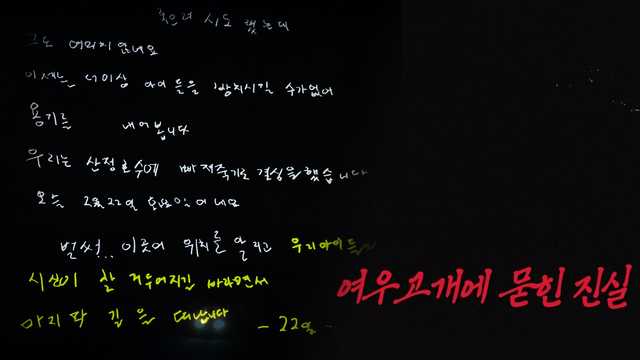 죽으려 시도 했는데
그도 여의치 않네요
이제는 더이상 아이들을 방치시킬 수가 없어
용기를 내어 봅니다
우리는 산정호수에 빠져죽기로 결심을 했습니다
오늘 2월 22일 토요일 이네요
벌써.. 이곳에 위치를 알리고 우리아이들
시신이 할 거두어지길 바라면서
마지막 길을 떠납니다
- 22일 -
여우고개에 묻힌 진실